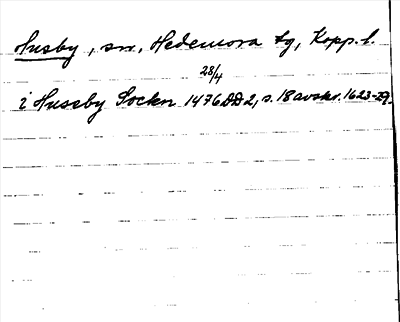 Husby, sn, Hedemora tg, Kopp. l.
28/4
i Hussby Sockn 1476 DD 2, s. 18 avskr. 1623-29.